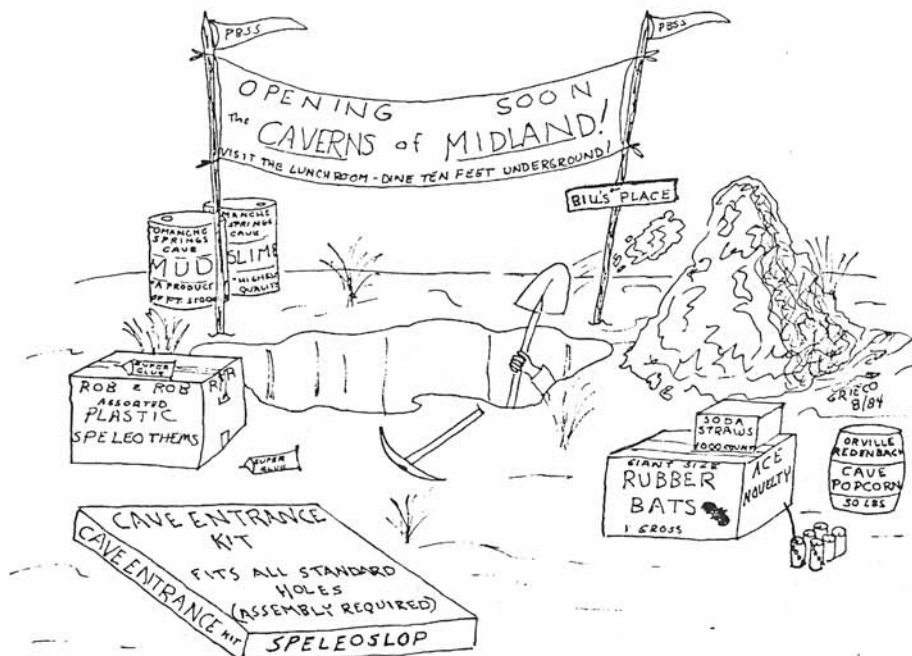 PBSS
PBSS
OPENING SOON
The CAVERNS of MIDLAND!
VISIT THE LUNCHROOM - DINE TEN FEET UNDERGROUND!
BILL'S PLACE
OMANCHE
SPRINGS
CAVE
MUD
A PRODUC
OF FT. STOCK
MANCHE
SPRINGS
CAVE
SLIME
HIGHEST
QUALITY
SUPER
GLUE
ROB & ROB
ASSORTED
PLASTIC
SPELEOTHEMS
R R
SUPER
GLUE
GRIECO
8/84
SODA
STRAWS
1000 COUNT
GIANT SIZE
RUBBER
BATS
1 GROSS
ACE
NOVELTY
ORVILLE
REDENBACH
CAVE
POPCORN
50 LBS
CAVE ENTRANCE
KIT
FITS ALL STANDARD
HOLES
(ASSEMBLY REQUIRED)
CAVE ENTRANCE KIT
SPELEOSLOP